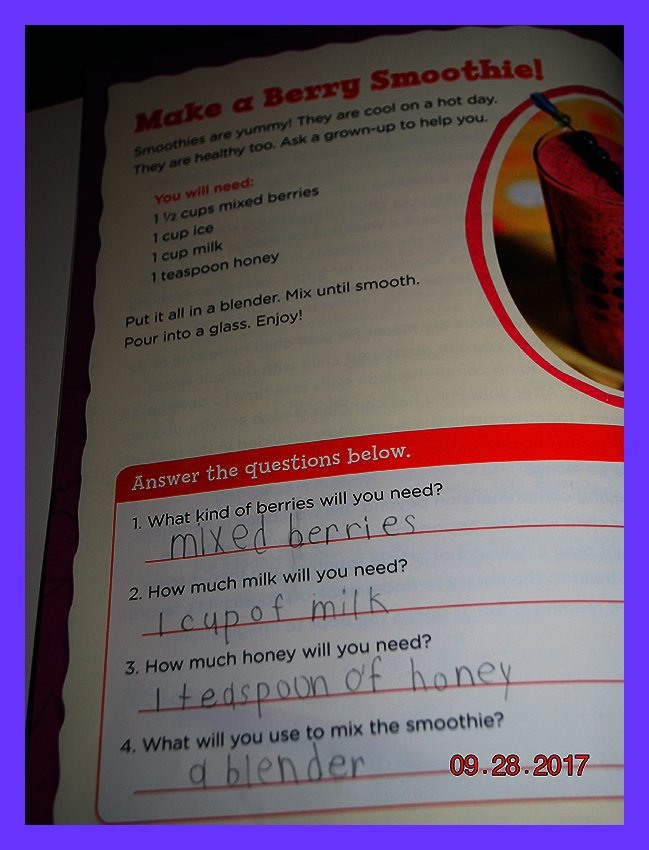 Make a Berry Smoothie!
Smoothies are yummy! They are cool on a hot day.
They are healthy too. Ask a grown-up to help you.
You will need:
1 ½ cups mixed berries
1 cup ice
1 cup milk
1 teaspoon honey
Put it all in a blender. Mix until smooth.
Pour into a glass. Enjoy!
Answer the questions below.
1. What kind of berries will you need?
mixed berries
2. How much milk will you need?
1 cup of milk
3. How much honey will you need?
1 teaspoon of honey
4. What will you use to mix the smoothie?
a blender
09.28.2017